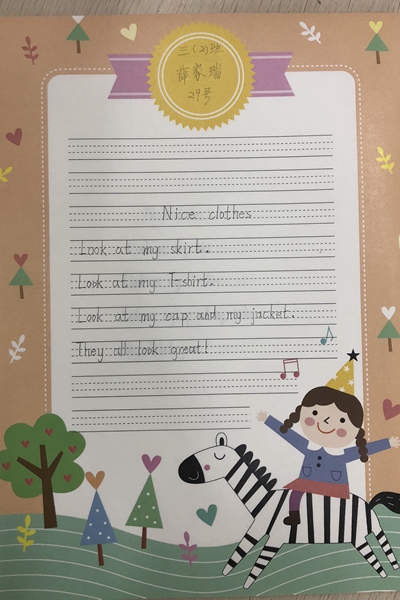 三(2)班
薛家瑞
29号
Nice clothes
Look at my skirt.
Look at my T-shirt.
Look at my cap and my jacket.
They all look great!